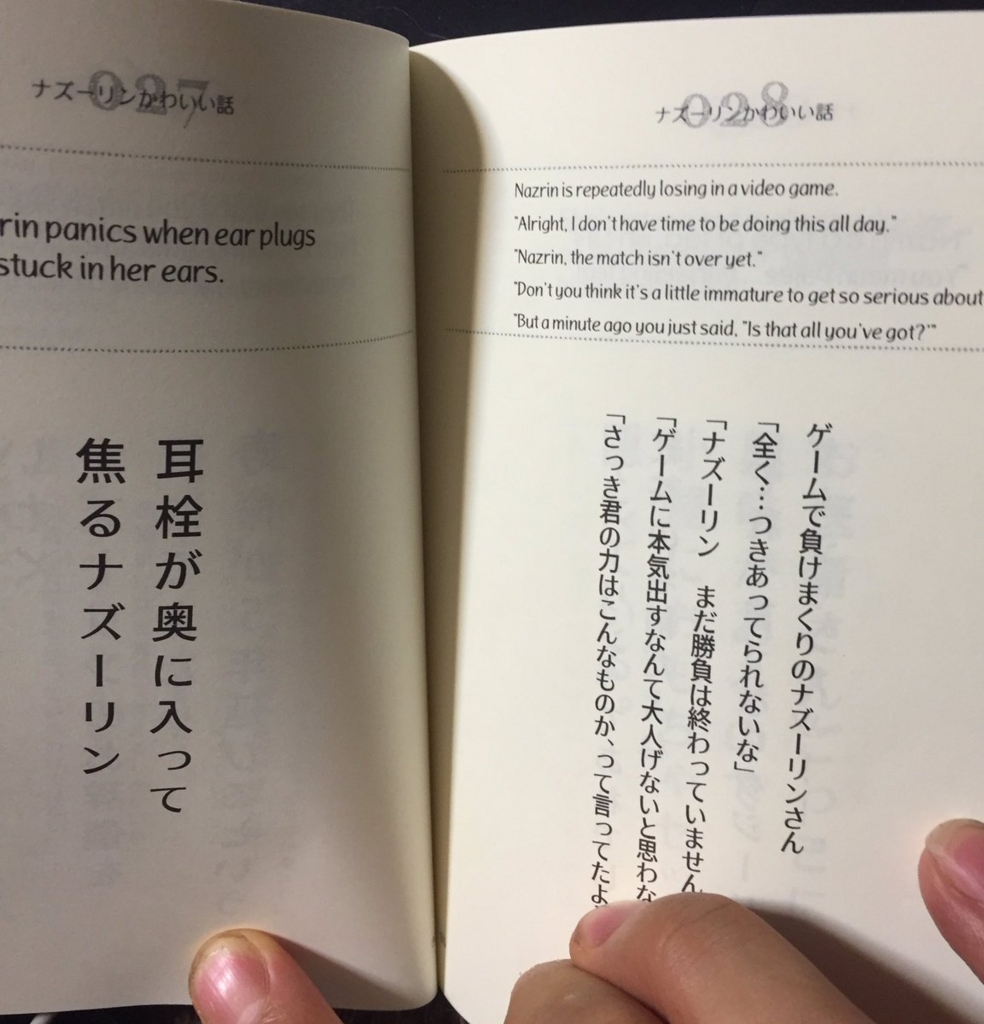 027
ナズーリンかわいい話
rin panics when ear plugs
stuck in her ears.
耳栓が奥に入って
焦るナズーリン
028
ナズーリンかわいい話
Nazrin is repeatedly losing in a video game.
"Alright, I don't have time to be doing this all day."
"Nazrin, the match isn't over yet."
"Don't you think it's a little immature to get so serious about
"But a minute ago you just said, "Is that all you've got?'"
ゲームで負けまくりのナズーリンさん
「全く…つきあってられないな」
「ナズーリン　まだ勝負は終わっていません
「ゲームに本気出すなんて大人げないと思わな
「さっき君の力はこんなものか、って言ってたよ